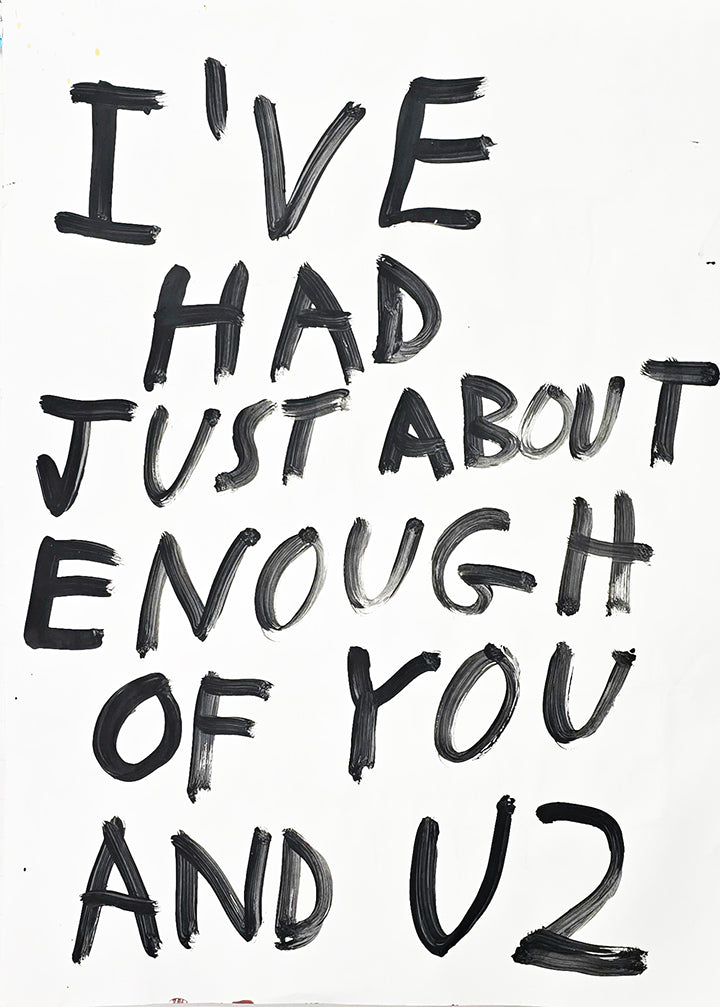 I'VE
HAD
JUST ABOUT
ENOUGH
OF YOU
AND U2